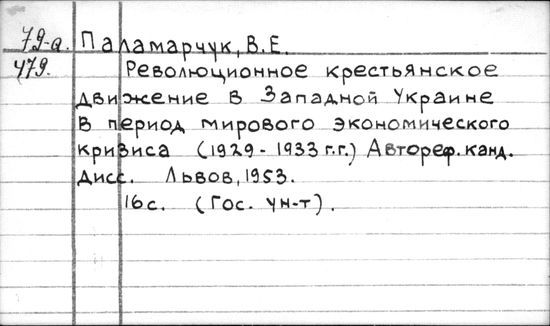 79-а. Паламарчук, В.Е.
479. Революционное крестьянское
движение в Западной Украине
в период мирового экономического
кризиса (1929-1933 г.г.) Автореф. канд.
дисс. Львов, 1953.
16 с. (Гос. ун-т).